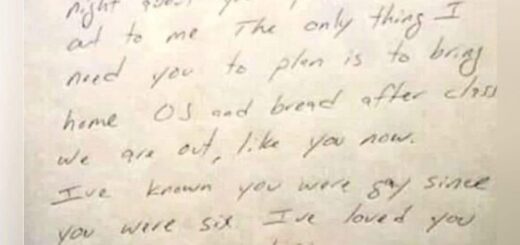 night
out to me The only thing I
need you to plan is to bring
home OJ and bread after class
we are out, like you now.
I've known you were gay since
you were six I've loved you